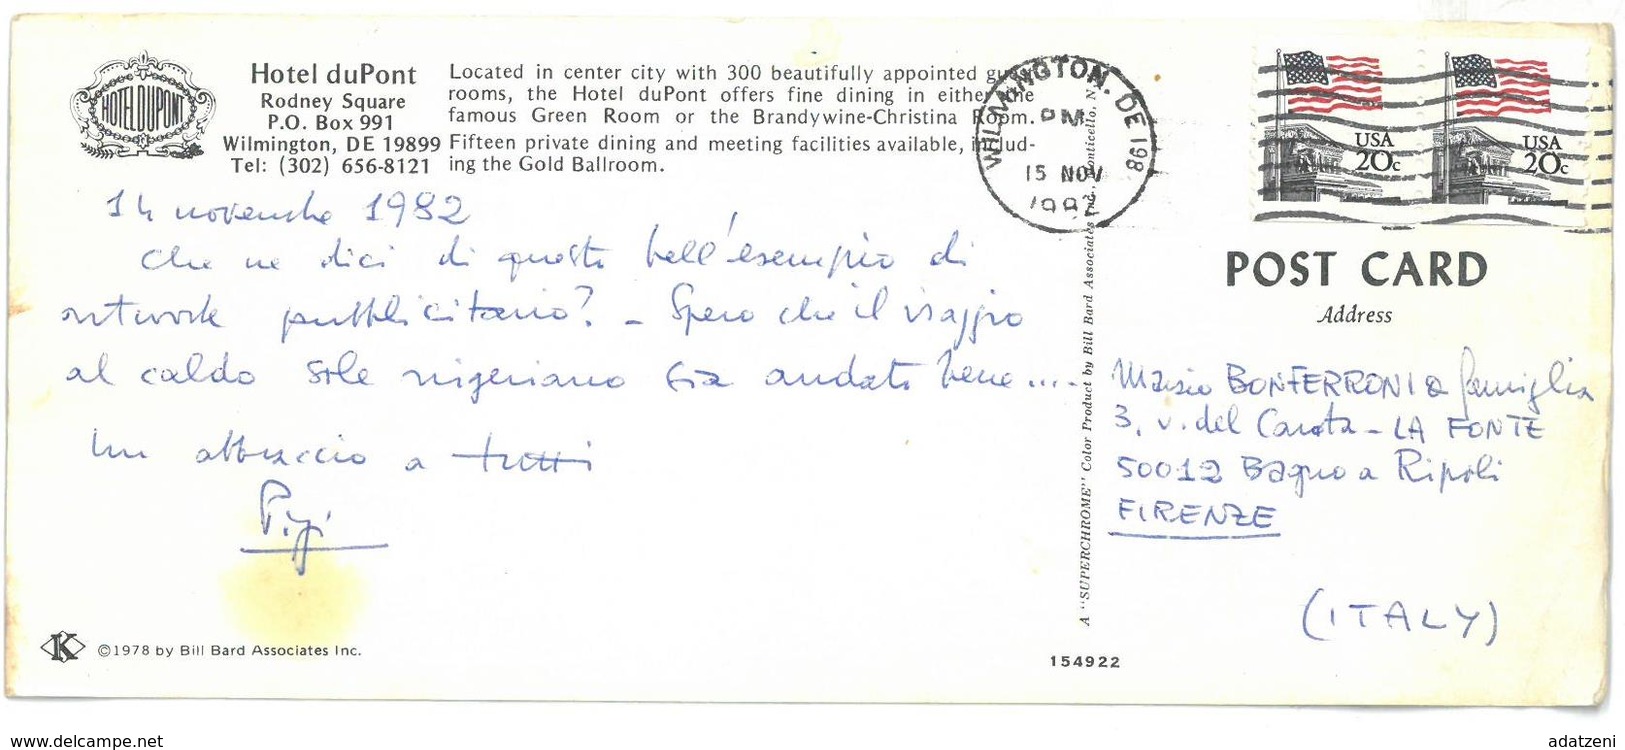 HOTEL DUPONT
Hotel duPont
Rodney Square
P.O. Box 991
Wilmington, DE 19899
Tel: (302) 656-8121
Located in center city with 300 beautifully appointed
rooms, the Hotel duPont offers fine dining in either the
famous Green Room or the Brandywine-Christina Room.
Fifteen private dining and meeting facilities available, includ-
ing the Gold Ballroom.
WILMINGTON, DE 198
PM
15 NOV
USA
20c
USA
20c
14 novembre 1982
Che ne dici di questo bell'esempio di
network pubblicitario? - Spero che il viaggio
al caldo sole nigeriano sia andato bene....
Un abbraccio a tutti
Pigi
POST CARD
Address
Mario BONFERRONI & famiglia
3, v. del Carota - LA FONTE
50012 Bagno a Ripoli
FIRENZE
(ITALY)
A "SUPERCHROME" Color Product by Bill Bard Associates Inc., Monticello, N.
K ©1978 by Bill Bard Associates Inc.
154922
www.delcampe.net
adatzeni